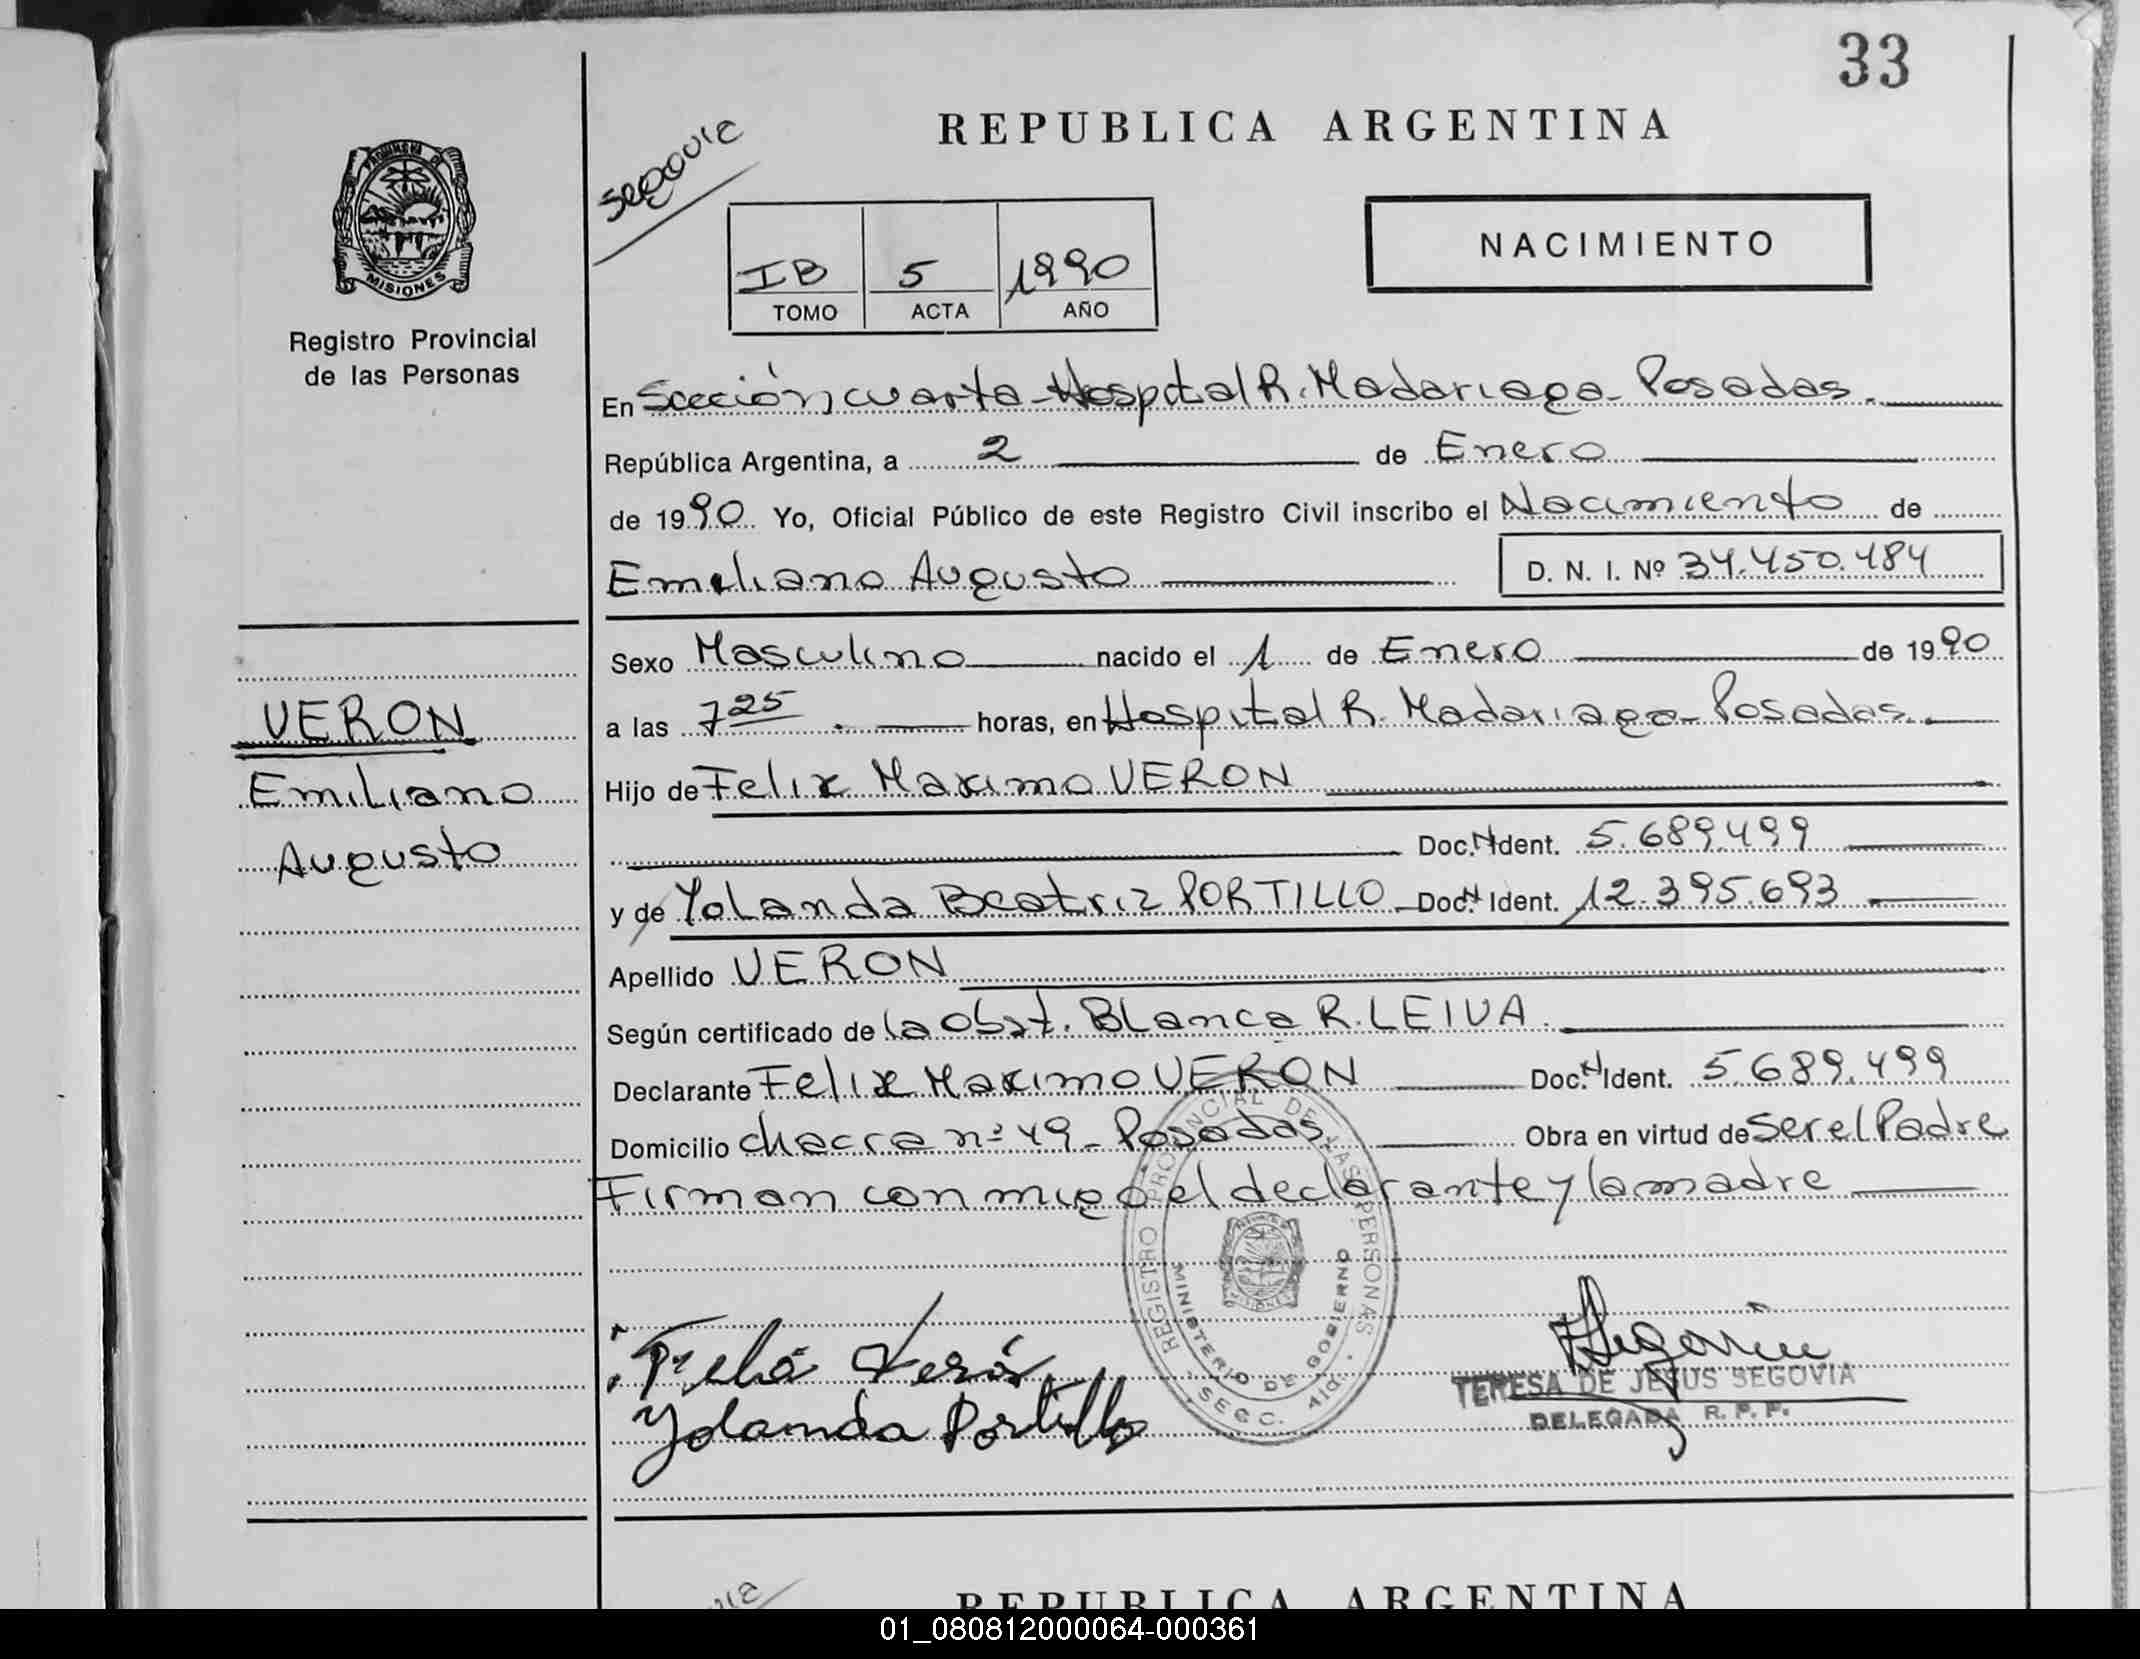 33
REPUBLICA ARGENTINA
Segovia
NACIMIENTO
PROVINCIA DE
MISIONES
IB 5 1990
TOMO ACTA AÑO
Registro Provincial
de las Personas
En Sección cuarta - Hospital R. Madariaga - Posadas.
República Argentina, a 2 de Enero
de 1990 Yo, Oficial Público de este Registro Civil inscribo el Nacimiento de
Emiliano Augusto D. N. I. Nº 34.450.484
Sexo Masculino nacido el 1 de Enero de 1990
a las 7 25 horas, en Hospital R. Madariaga - Posadas.
VERON
Emiliano
Augusto
Hijo de Felix Maximo VERON
Doc. N Ident. 5.689.499
y de Yolanda Beatriz PORTILLO Doc. N Ident. 12.395.693
Apellido VERON
Según certificado de la Obst. Blanca R. LEIVA.
Declarante Felix Maximo VERON Doc. N Ident. 5.689.499
Domicilio chacra nº 49 - Posadas. Obra en virtud de Ser el Padre
Firman conmigo el declarante y la madre
REGISTRO PROVINCIAL DE LAS PERSONAS
MINISTERIO DE GOBIERNO
SECC. 4ta.
MISIONES
Yolanda Portillo
Segovia
TERESA DE JESUS SEGOVIA
DELEGADA R. P. P.
REPUBLICA ARGENTINA
01_080812000064-000361